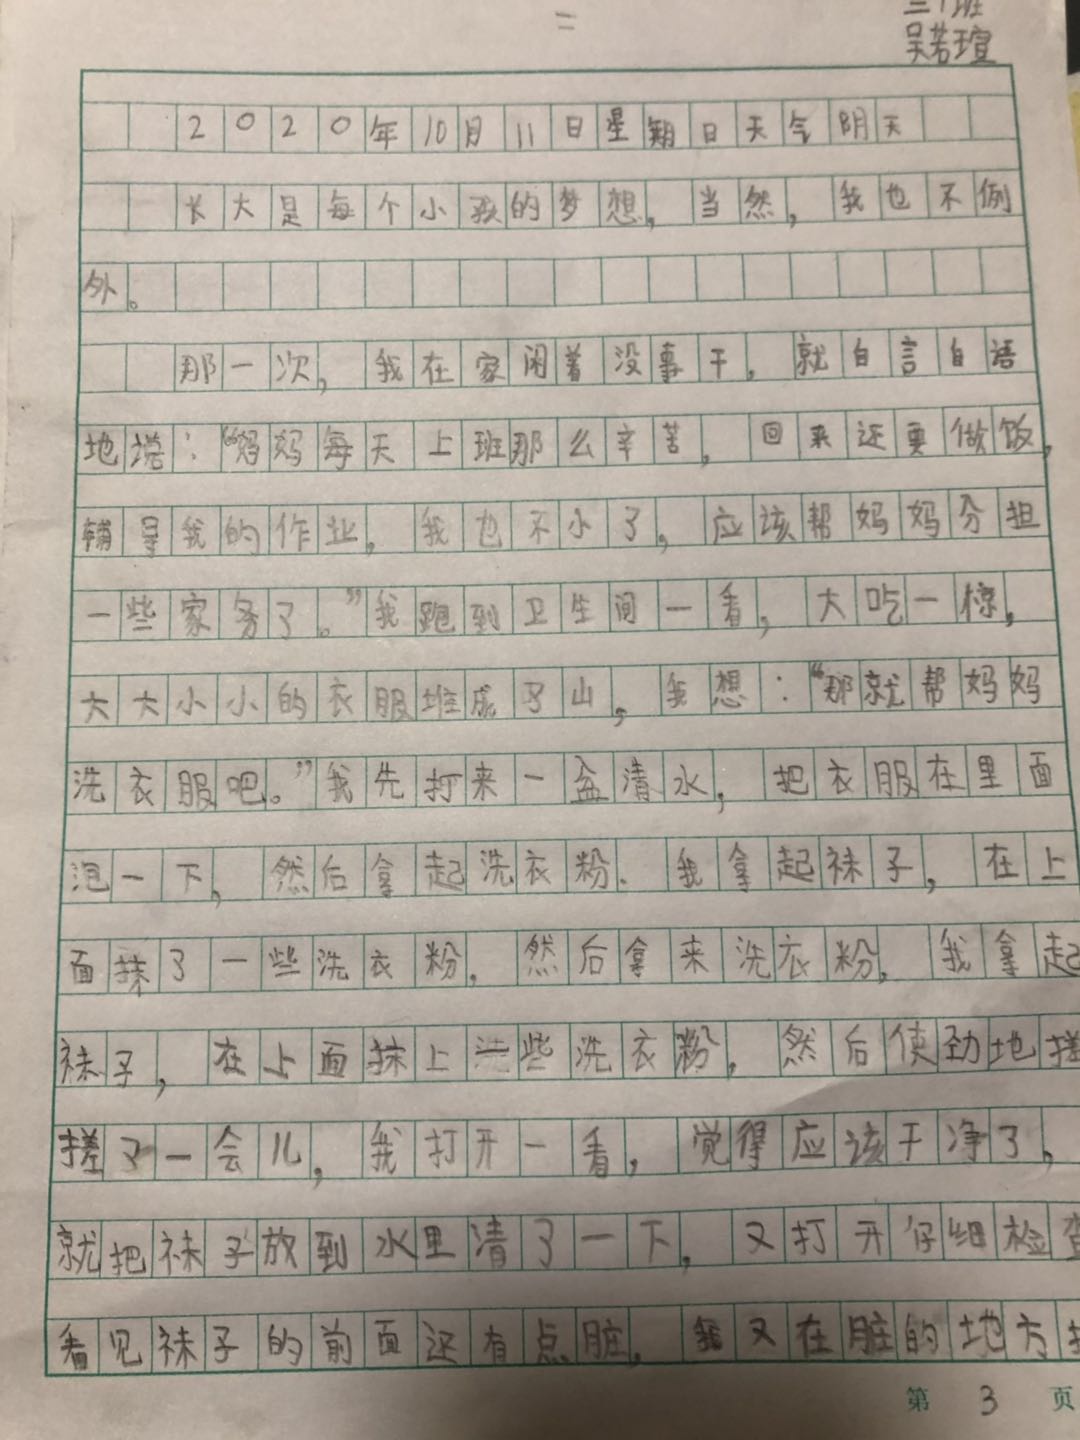 二
三1班
吴若瑄
2020年10月11日星期日天气阴天
长大是每个小孩的梦想，当然，我也不例
外。
那一次，我在家闲着没事干，就自言自语
地说：“妈妈每天上班那么辛苦，回来还要做饭，
辅导我的作业，我也不小了，应该帮妈妈分担
一些家务了。”我跑到卫生间一看，大吃一惊，
大大小小的衣服堆成了山，我想：“那就帮妈妈
洗衣服吧。”我先打来一盆清水，把衣服在里面
泡一下，然后拿起洗衣粉.我拿起袜子，在上
面抹了一些洗衣粉.然后拿来洗衣粉，我拿起
袜子，在上面抹上些洗衣粉，然后使劲地搓
搓了一会儿，我打开一看，觉得应该干净了，
就把袜子放到水里清了一下，又打开仔细检查
看见袜子的前面还有点脏，我又在脏的地方
第 3 页